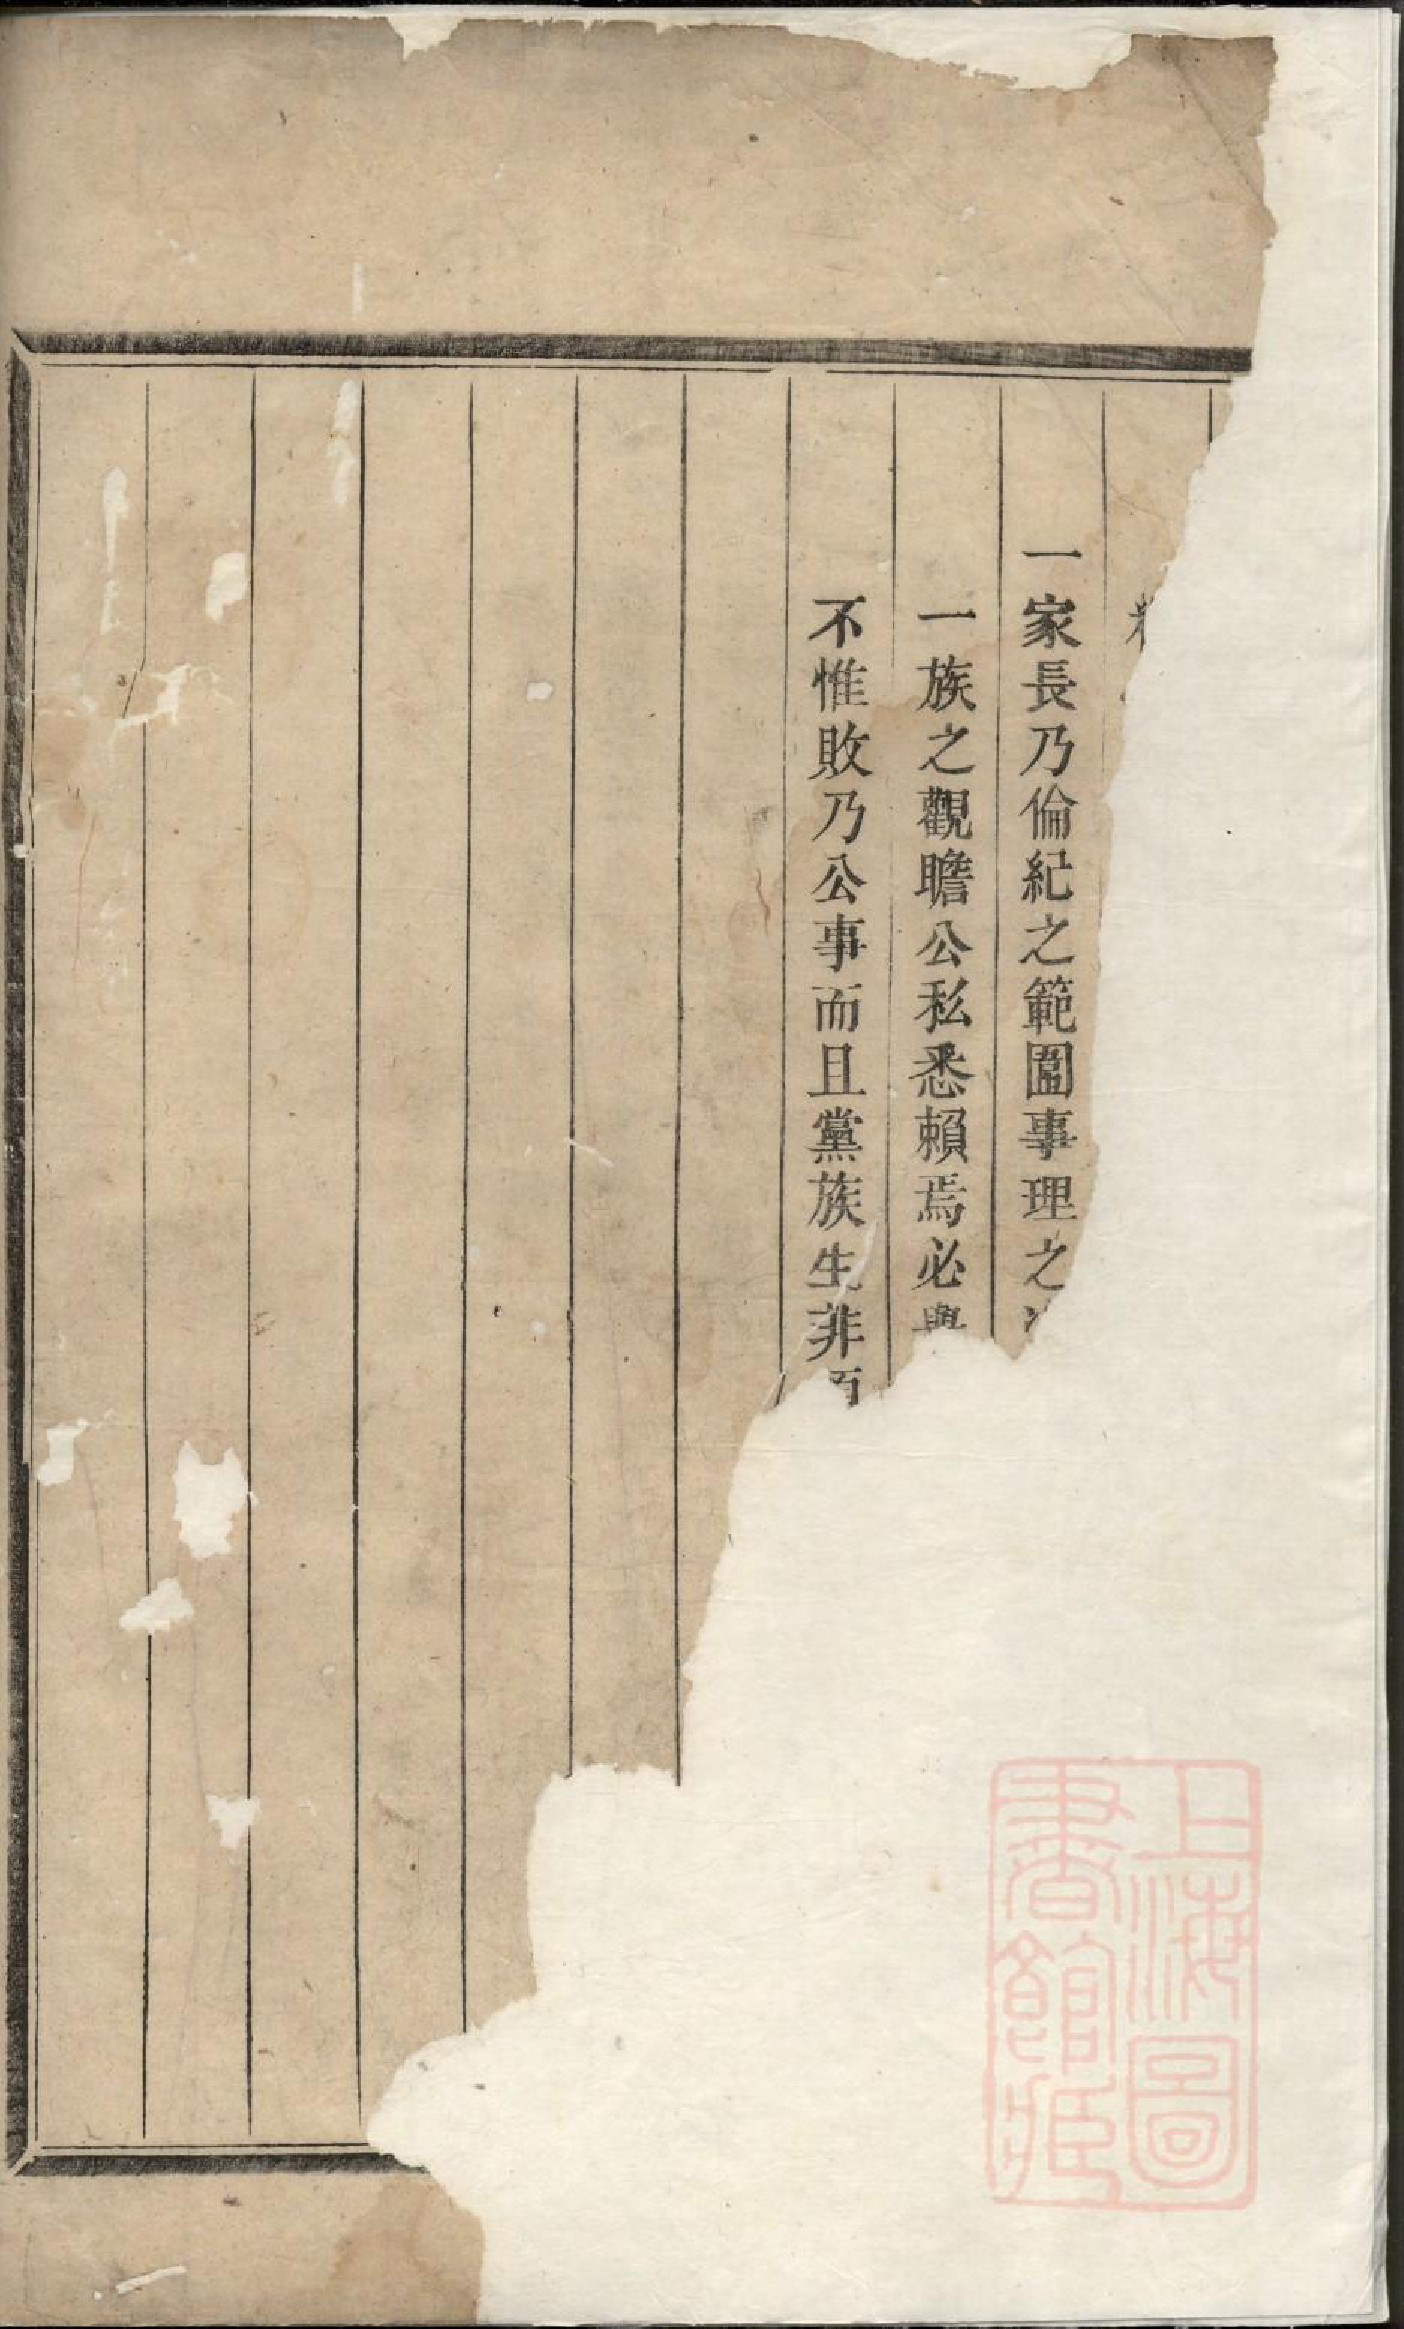 一家長乃倫紀之範圍事理之
一族之觀瞻公私悉賴焉必
不惟敗乃公事而且黨族生非
上海圖
書館藏